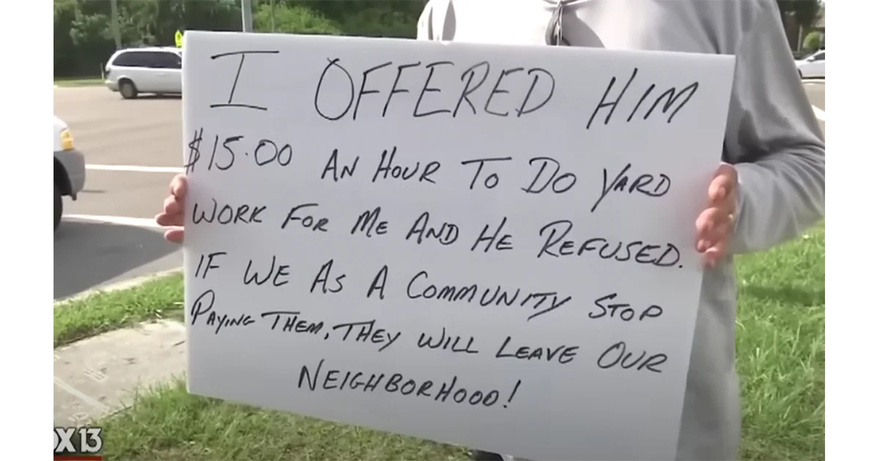 I OFFERED HIM
$15.00 AN HOUR TO DO YARD
WORK FOR ME AND HE REFUSED.
IF WE AS A COMMUNITY STOP
PAYING THEM, THEY WILL LEAVE OUR
NEIGHBORHOOD!
X13